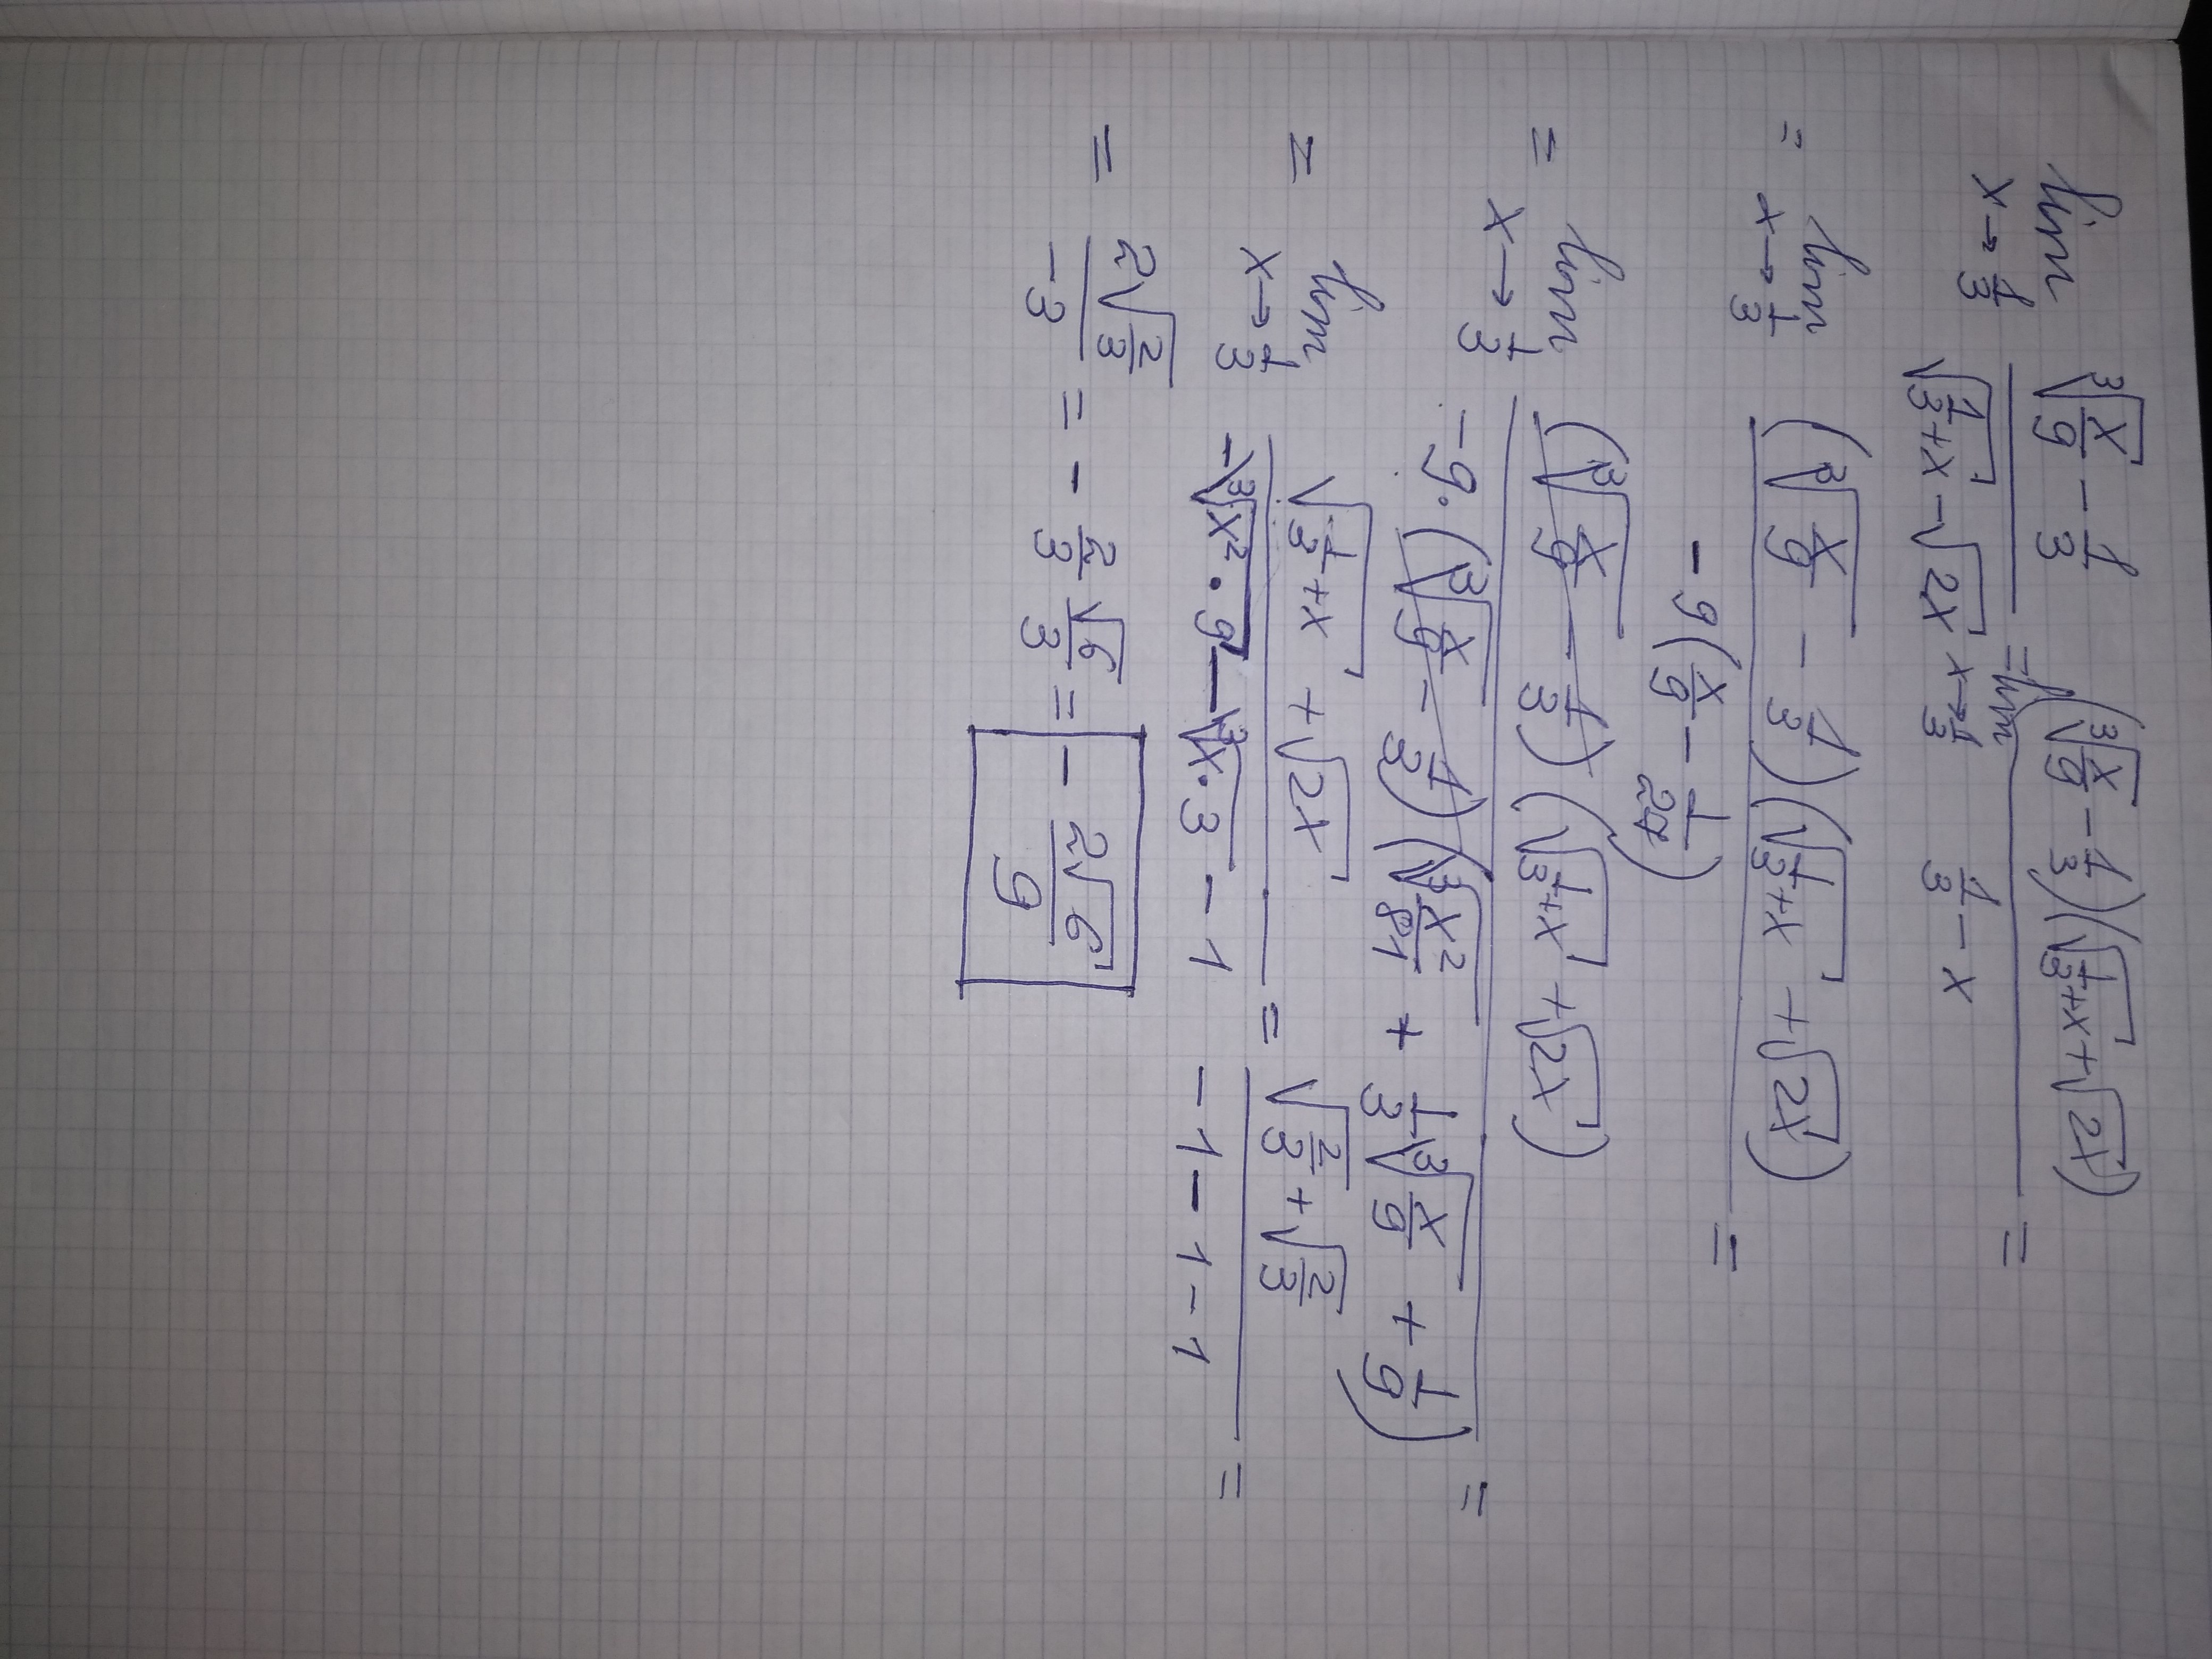 lim x→1/3 (∛(x/9) − 1/3)/(√(1/3+x) − √2x) = lim x→1/3 ((∛(x/9) − 1/3)(√(1/3+x) + √2x))/(1/3 − x) =
= lim x→1/3 ((∛(x/9) − 1/3)(√(1/3+x) + √2x))/(−9(x/9 − 1/27)) =
= lim x→1/3 ((∛(x/9) − 1/3)(√(1/3+x) + √2x))/(−9·(∛(x/9) − 1/3)(∛(x²/81) + 1/3 ∛(x/9) + 1/9)) =
= lim x→1/3 (√(1/3+x) + √2x)/(−∛(x²·9) − ∛(x·3) − 1) = (√(2/3) + √(2/3))/(−1−1−1) =
= (2√(2/3))/(−3) = − 2/3 √6/3 = − 2√6/9